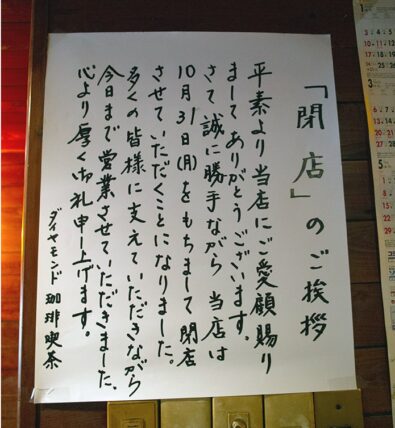 「閉店」のご挨拶
平素より当店にご愛顧賜り
ましてありがとうございます。
さて誠に勝手ながら当店は
10月31日(月)をもちまして閉店
させていただくことになりました。
多くの皆様に支えていただきながら
今日まで営業させていただきました、
心より厚く御札申し上げます。
ダイヤモンド 珈琲喫茶